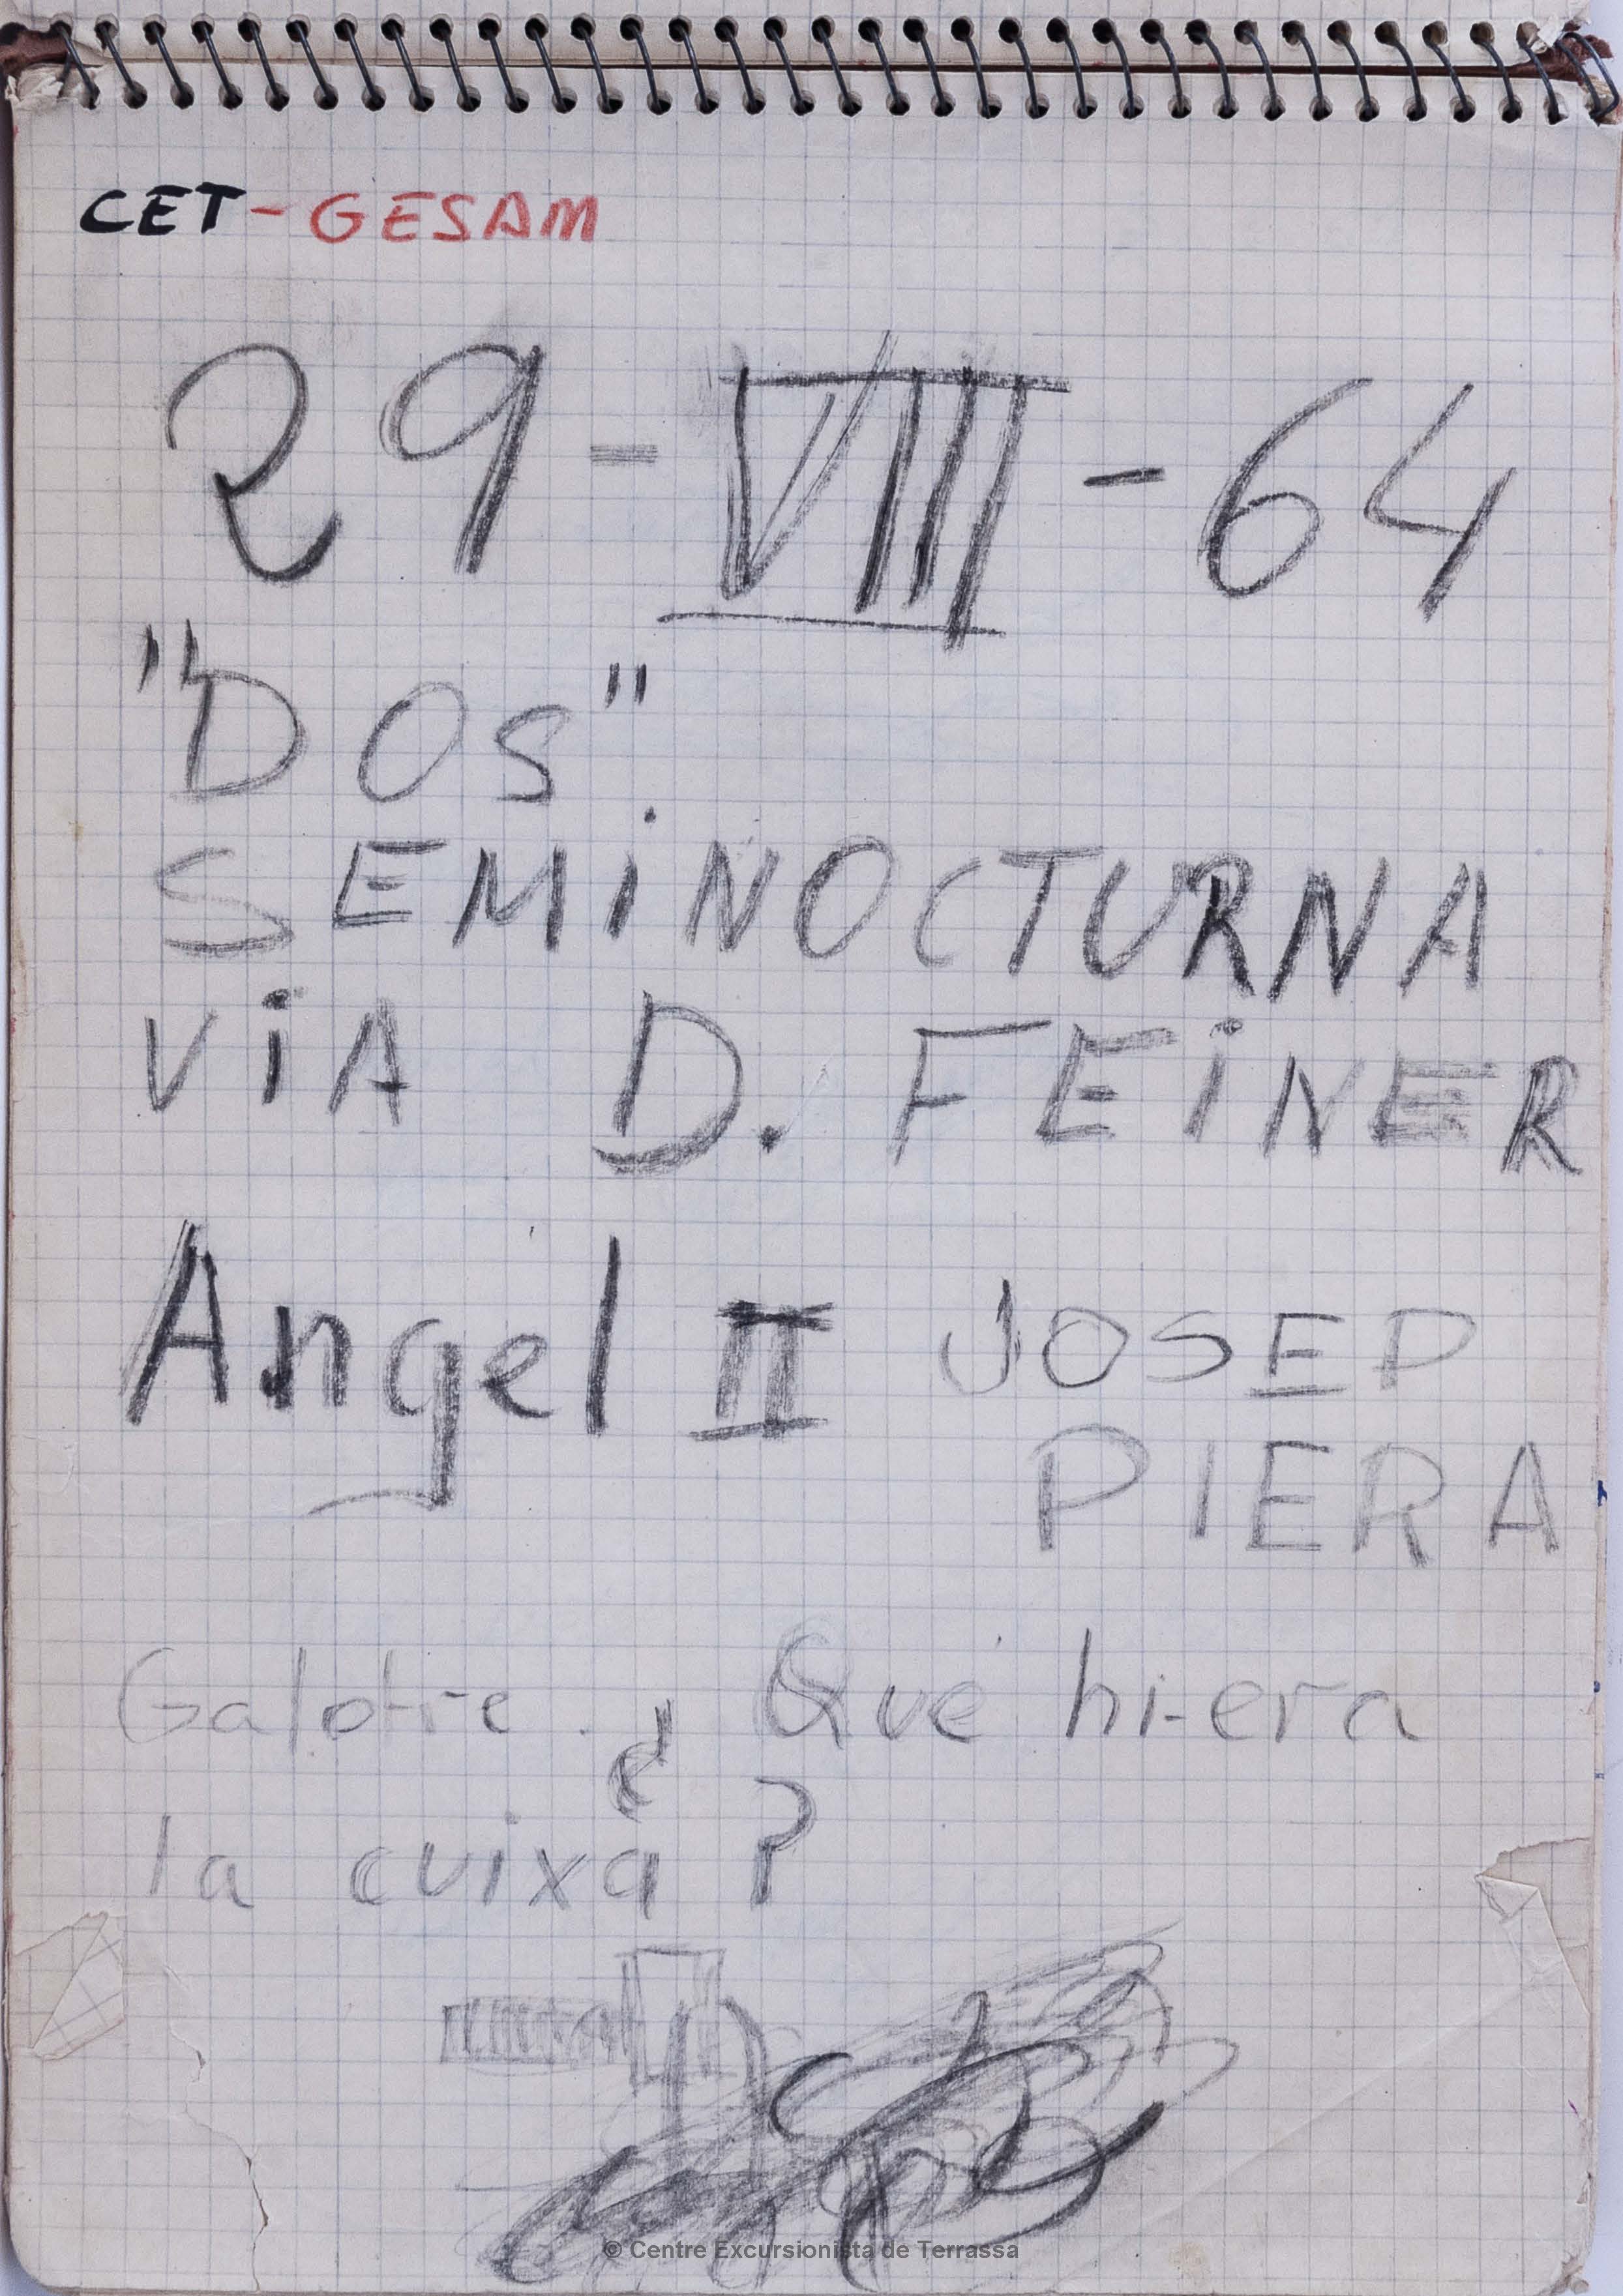 CET-GESAM
29-VIII-64
"DOS".
SEMiNOCTURNA
ViA D. FEiNER
Angel II JOSEP
PIERA
Galotre. ¿Qué hi-era
la cuixa?
© Centre Excursionista de Terrassa